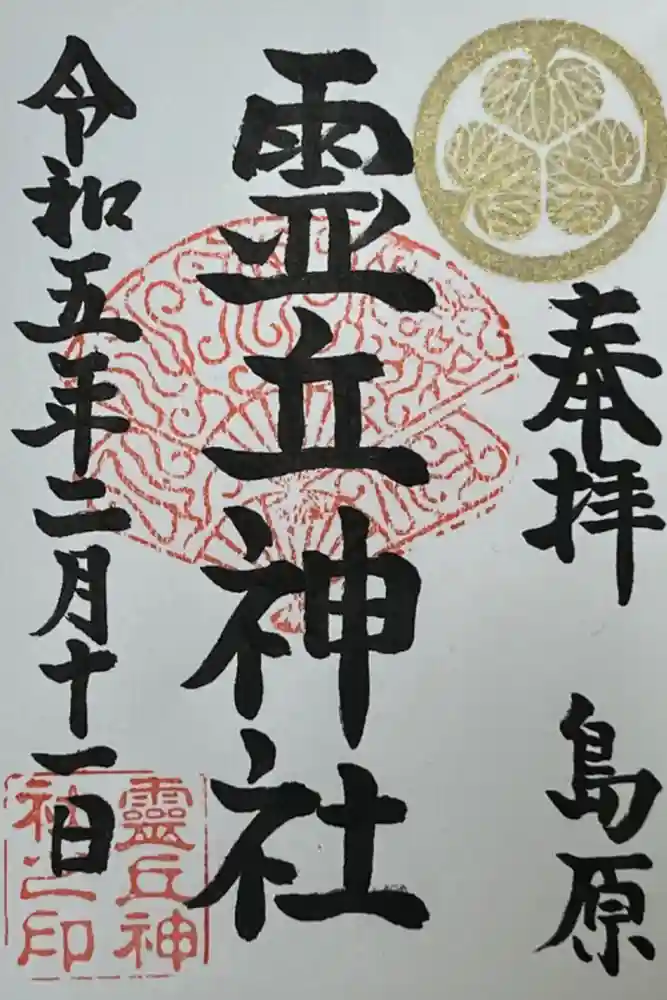 奉拝　島原
霊丘神社
令和五年二月十一日
靈丘神
社之印